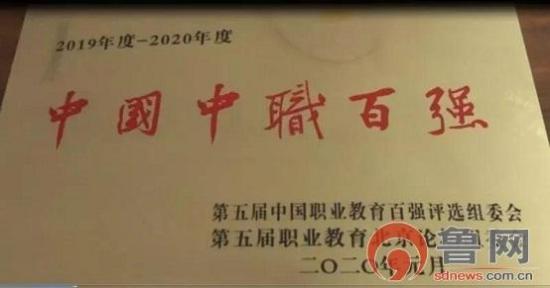 2019年度-2020年度
中國中職百强
第五届中国职业教育百强评选组委会
第五届职业教育北京论
二〇二〇年元月
鲁网
sdnews.com.cn